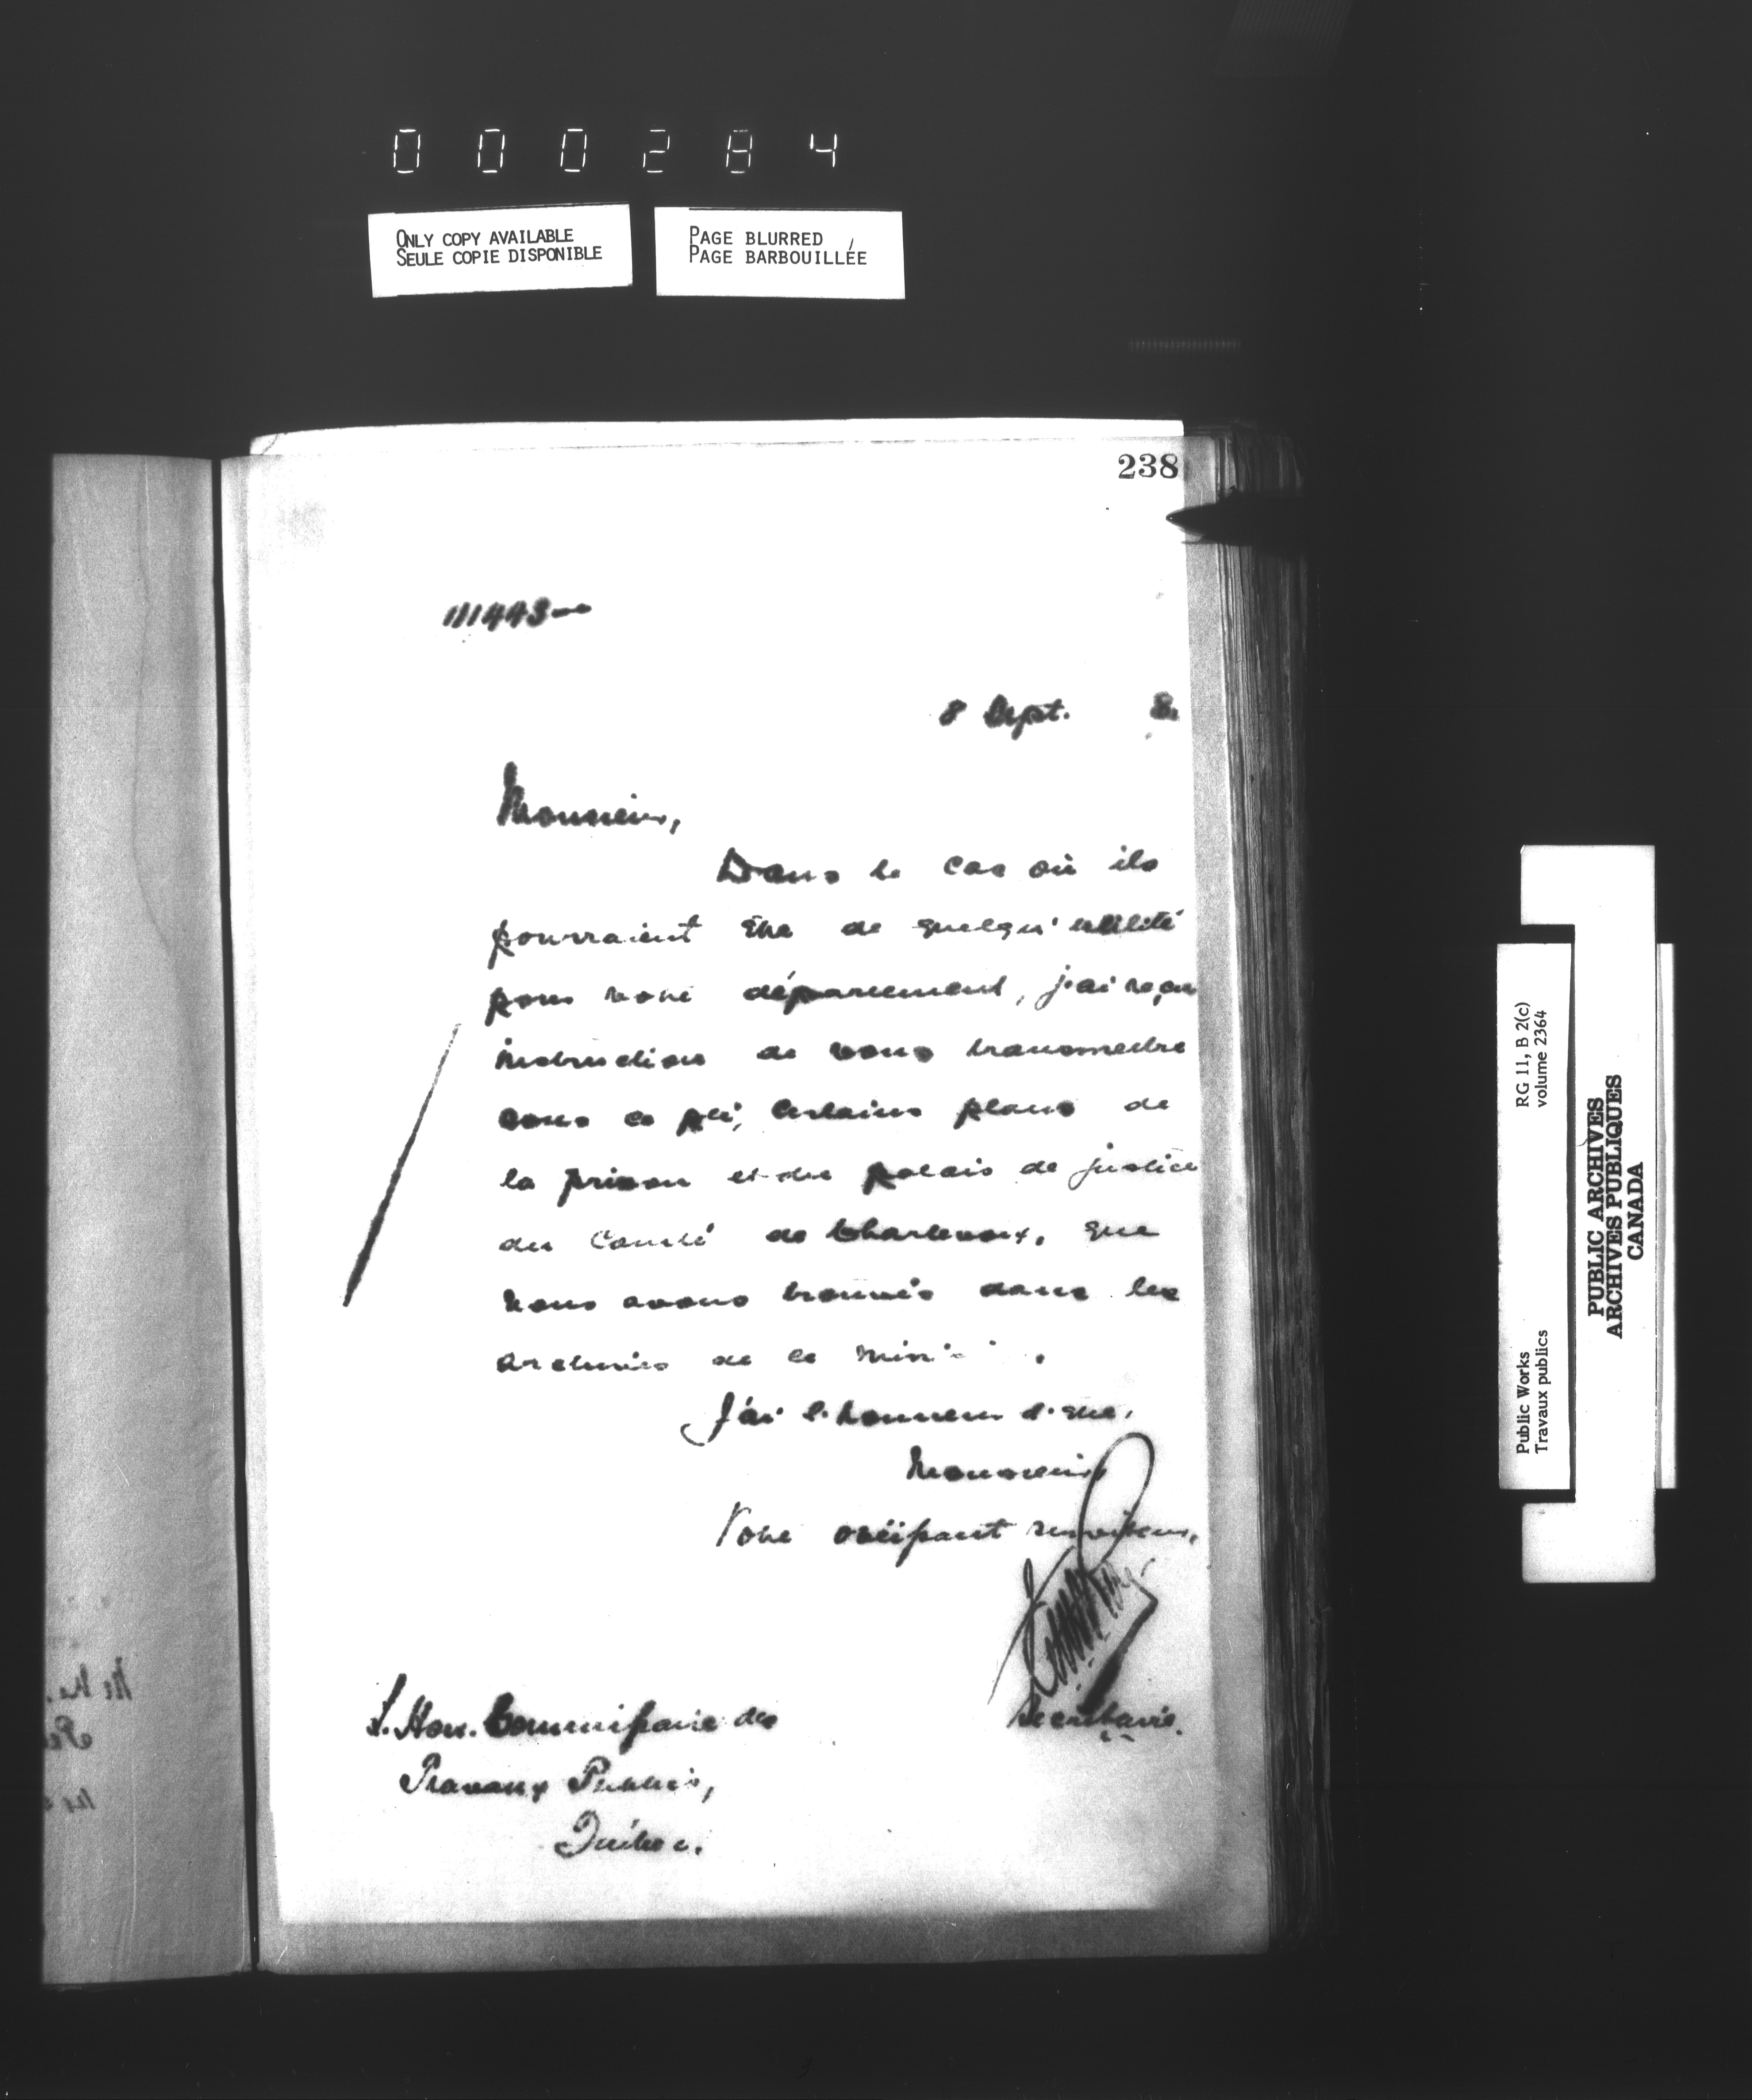 000284
ONLY COPY AVAILABLE
SEULE COPIE DISPONIBLE
PAGE BLURRED
PAGE BARBOUILLÉE
238
111443
8 Sept.
Monsieur,
Dans le cas où ils
pourraient être de quelqu'utilité
pour votre département, j'ai reçu
instructions de vous transmettre
sous ce pli, certains plans de
la prison et du palais de justice
du Comté de Charlevoix, que
nous avons trouvés dans les
archives de ce
J'ai l'honneur d'être,
Monsieur
Votre obéissant serviteur,
Secrétaire.
L'Hon. Commissaire des
Travaux Publics,
Québec.
RG 11, B 2(c)
volume 2364
Public Works
Travaux publics
PUBLIC ARCHIVES
ARCHIVES PUBLIQUES
CANADA